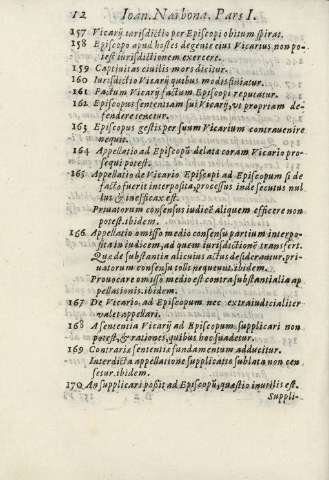 12 Ioan. Narbona. Pars I.
157 Vicarij iurisdictio per Episcopi obitum spirat.
158 Episcopo apud hostes degente eius Vicarius non po-
test iurisdictionem exercere.
159 Captiuitas ciuilis mors dicitur.
160 Iurisdictio Vicarij quibus modis finiatur.
161 Factum Vicarij factum Episcopi reputatur.
162 Episcopus sententiam sui Vicarij, vt propriam de-
fendere tenetur.
163 Episcopus gestis per suum Vicarium contrauenire
nequit.
164 Appellatio ad Episcopũ delata coram Vicario pro-
sequi potest.
165 Appellatio de Vicario Episcopi ad Episcopum si de
facto fuerit interposita, processus inde secutus nul
lus & inefficax est.
Priuatorum consensus iudicẽ aliquem efficere non
potest. ibidem.
166 Appellatio omisso medio consensu partium interpo-
sita in iudicem, ad quem iurisdictionẽ transfert.
Quæ de substantia alicuius actus desiderãtur, pri-
uatorum consensu tolli nequeunt. ibidem.
Prouocare omisso medio est contra substantialia ap
pellationis. ibidem.
167 De Vicario, ad Episcopum nec extraiudicialiter
valet appellari.
168 A sententia Vicarij ad Episcopum supplicari non
potest, & rationes, quibus hoc suadetur.
169 Contrariæ sententiæ fundamentum adducitur.
Interdicta appellatione supplicatio sublata non cen
setur. ibidem.
170 An supplicari possit ad Episcopũ, quæstio inutilis est.
Suppli-